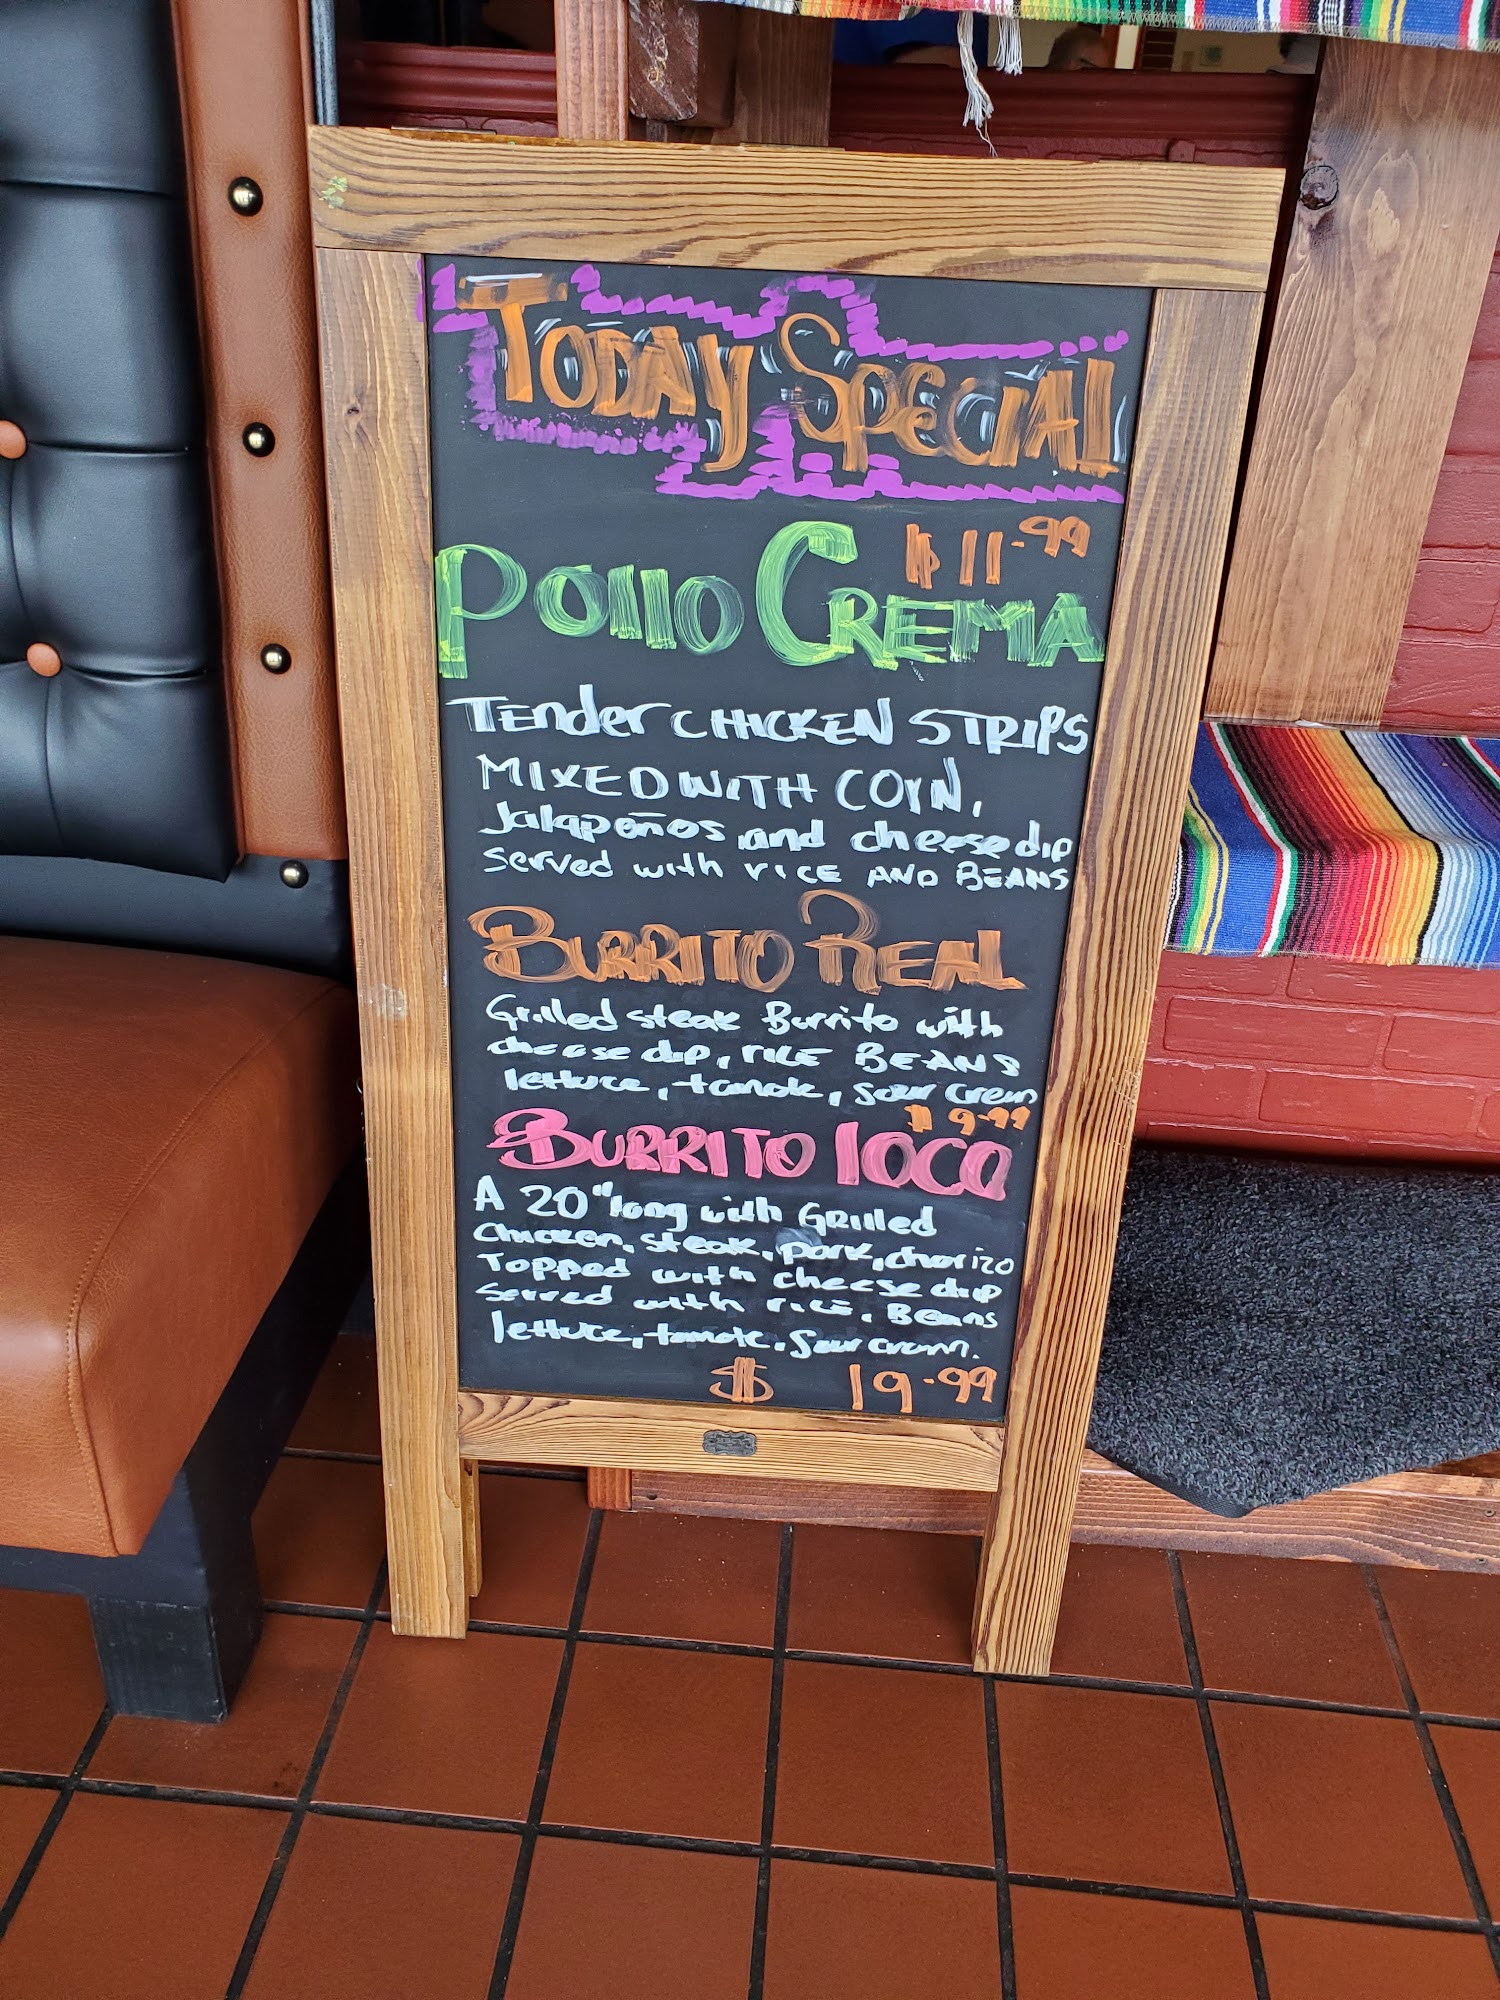 TODAY SPECIAL
$11.99
Pollo CREMA
TENder CHICKEN STRIPS
MIXED WITH CORN,
Jalapeños and cheese dip
served with rice AND BEANS
BURRITO REAL
Grilled steak Burrito with
cheese dip, rice BEANS
lettuce, tomate, sour cream
$9.99
BURRITO lOCO
A 20" long with Grilled
chicken, steak, pork, chorizo
Topped with cheese dip
served with rice, Beans
lettuce, tomate, Sour cream.
$ 19.99